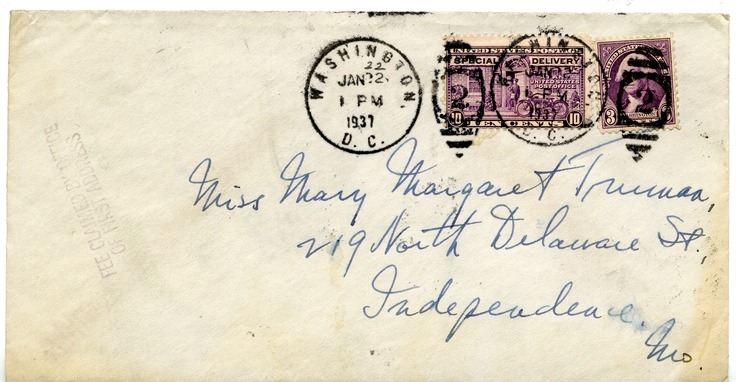 WASHINGTON,
22
JAN 22
1 PM
1937
D. C.
UNITED STATES POSTAGE
SPECIAL DELIVERY
UNITED STATES
POST OFFICE
10 TEN CENTS 10
2
JAN 22
1 PM
1937
D. C.
3
2
FEE CLAIMED BY OFFICE
OF FIRST ADDRESS
Miss Mary Margaret Truman,
219 North Delaware St.,
Independence.
Mo.